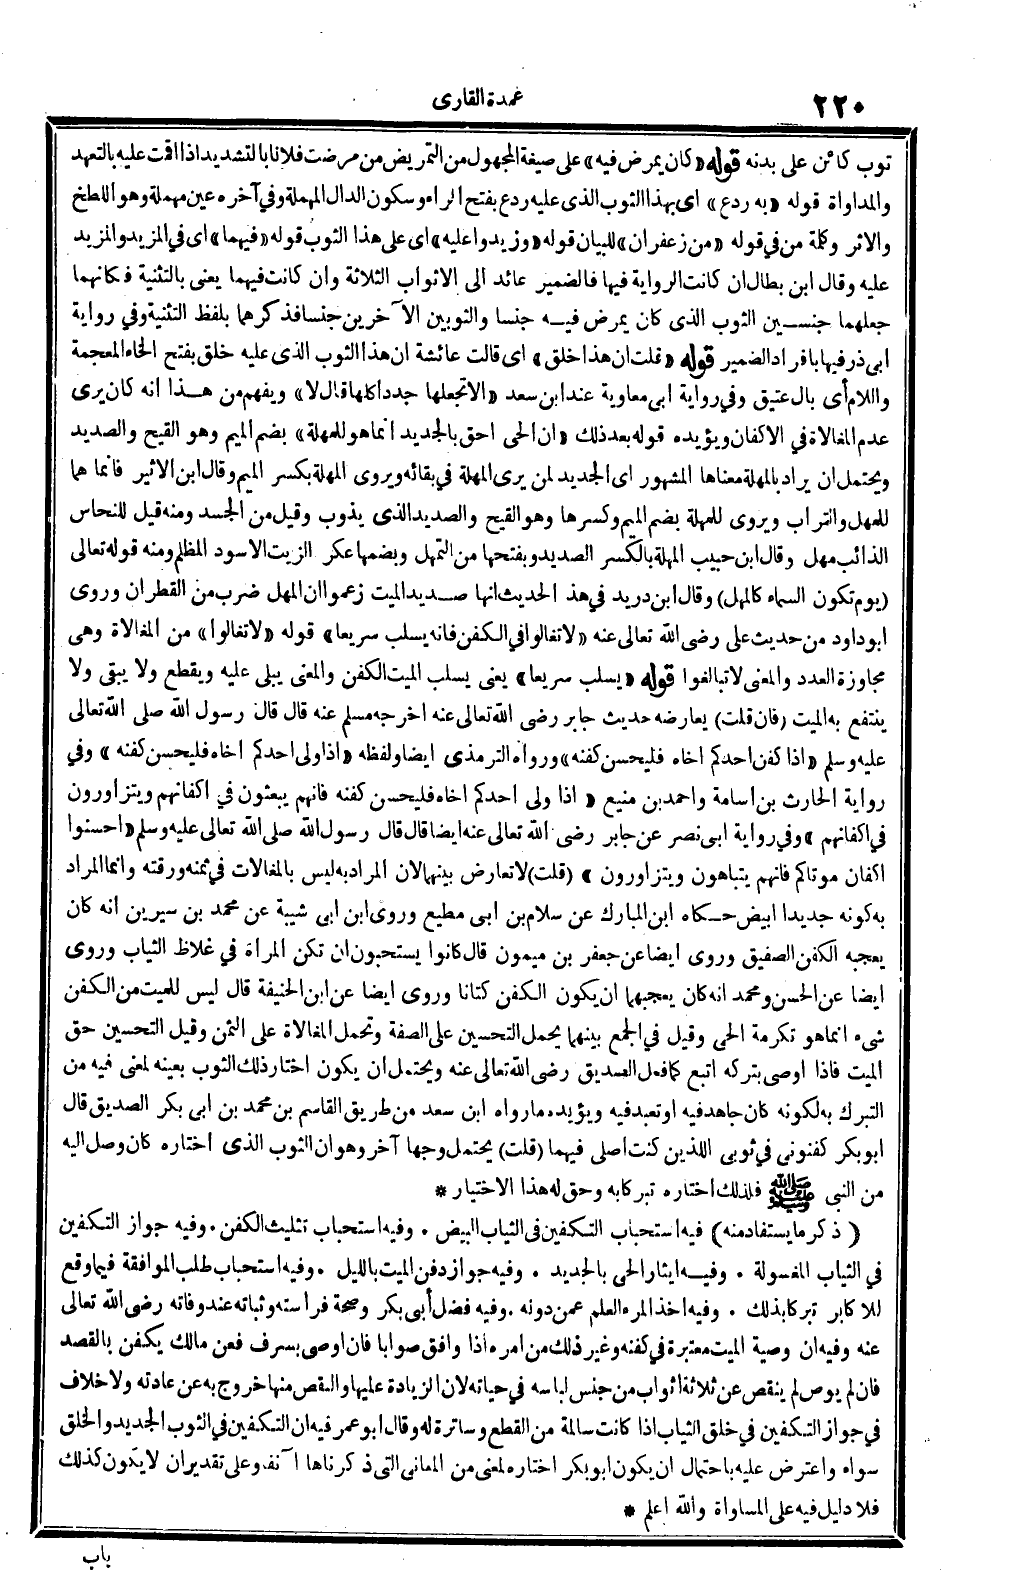 ٢٢٠
عمدة القارى
ثوب كائن على بدنه قوله «كان يمرض فيه» على صيغة المجهول من التمريض من مرضت فلانا بالتشديد اذا اقت عليه بالتعهد
والمداواة قوله «به ردع» اى بهذا الثوب الذى عليه ردع بفتح الراء وسكون الدال المهملة وفى آخره عين مهملة وهو اللطخ
والاثر وكلمة من فى قوله «من زعفران» للبيان قوله «وزيدوا عليه» اى على هذا الثوب قوله «فيهما» اى فى المزيد والمزيد
عليه وقال ابن بطال ان كانت الرواية فيها فالضمير عائد الى الاثواب الثلاثة وان كانت فيهما يعنى بالتثنية فكانهما
جعلهما جنسين الثوب الذى كان يمرض فيه جنسا والثوبين الآخرين جنسا فذكرهما بلفظ التثنية وفى رواية
ابى ذر فيها بافراد الضمير قوله «قلت ان هذا خلق» اى قالت عائشة ان هذا الثوب الذى عليه خلق بفتح الخاء المعجمة
واللام أى بال عتيق وفى رواية ابى معاوية عند ابن سعد «الا تجعلها جددا كلها قال لا» ويفهم من هذا انه كان يرى
عدم المغالاة فى الاكفان ويؤيده قوله بعد ذلك «ان الحى احق بالجديد انما هو للمهلة» بضم الميم وهو القيح والصديد
ويحتمل ان يراد بالمهلة معناها المشهور اى الجديد لمن يرى المهلة فى بقائه ويروى المهلة بكسر الميم وقال ابن الاثير فانما هما
للمهل والتراب ويروى للمهلة بضم الميم وكسرها وهو القيح والصديد الذى يذوب وقيل من الجسد ومنه قيل للنحاس
الذائب مهل وقال ابن حبيب المهلة بالكسر الصديد وبفتحها من التمهل وبضمها عكر الزيت الاسود المظلم ومنه قوله تعالى
(يوم تكون السماء كالمهل) وقال ابن دريد فى هذ الحديث انها صديد الميت زعموا ان المهل ضرب من القطران وروى
ابو داود من حديث على رضى الله تعالى عنه «لا تغالوا فى الكفن فانه يسلب سريعا» قوله «لا تغالوا» من المغالاة وهى
مجاوزة العدد والمعنى لا تبالغوا قوله «يسلب سريعا» يعنى يسلب الميت الكفن والمعنى يبلى عليه ويقطع ولا يبقى ولا
ينتفع به الميت (فان قلت) يعارضه حديث جابر رضى الله تعالى عنه اخرجه مسلم عنه قال قال رسول الله صلى الله تعالى
عليه وسلم «اذا كفن احدكم اخاه فليحسن كفنه» ورواه الترمذى ايضا ولفظه «اذا ولى احدكم اخاه فليحسن كفنه» وفى
رواية الحارث بن اسامة واحمد بن منيع «اذا ولى احدكم اخاه فليحسن كفنه فانهم يبعثون فى اكفانهم ويتزاورون
فى اكفانهم» وفى رواية ابى نصر عن جابر رضى الله تعالى عنه ايضا قال قال رسول الله صلى الله تعالى عليه وسلم «احسنوا
اكفان موتاكم فانهم يتباهون ويتزاورون» (قلت) لا تعارض بينهما لان المراد به ليس بالمغالات فى ثمنه ورقته وانما المراد
به كونه جديدا ابيض حكاه ابن المبارك عن سلام بن ابى مطيع وروى ابن ابى شيبة عن محمد بن سيرين انه كان
يعجبه الكفن الصفيق وروى ايضا عن جعفر بن ميمون قال كانوا يستحبون ان تكن المرأة فى غلاظ الثياب وروى
ايضا عن الحسن ومحمد انه كان يعجبهما ان يكون الكفن كتانا وروى ايضا عن ابن الحنيفة قال ليس للميت من الكفن
شىء انما هو تكرمة الحى وقيل فى الجمع بينهما يحمل التحسين على الصفة وتحمل المغالاة على الثمن وقيل التحسين حق
الميت فاذا اوصى بتركه اتبع كما فعل الصديق رضى الله تعالى عنه ويحتمل ان يكون اختار ذلك الثوب بعينه لمعنى فيه من
التبرك به لكونه كان جاهد فيه او تعبد فيه ويؤيده ما رواه ابن سعد من طريق القاسم بن محمد بن ابى بكر الصديق قال
ابو بكر كفنونى فى ثوبى اللذين كنت اصلى فيهما (قلت) يحتمل وجها آخر وهو ان الثوب الذى اختاره كان وصل اليه
من النبى ﷺ فلذلك اختاره تبركا به وحق له هذا الاختيار *
(ذكر ما يستفاد منه) فيه استحباب التكفين فى الثياب البيض . وفيه استحباب تثليث الكفن . وفيه جواز التكفين
فى الثياب المغسولة . وفيه ايثار الحى بالجديد . وفيه جواز دفن الميت بالليل . وفيه استحباب طلب الموافقة فيما وقع
للاكابر تبركا بذلك . وفيه اخذ المرء العلم عمن دونه . وفيه فضل أبى بكر وصحة فراسته وثباته عند وفاته رضى الله تعالى
عنه وفيه ان وصية الميت معتبرة فى كفنه وغير ذلك من امره اذا وافق صوابا فان اوصى بسرف فعن مالك يكفن بالقصد
فان لم يوص لم ينقص عن ثلاثة اثواب من جنس لباسه فى حياته لان الزيادة عليها والنقص منها خروج به عن عادته ولا خلاف
فى جواز التكفين فى خلق الثياب اذا كانت سالمة من القطع وساترة له وقال ابو عمر فيه ان التكفين فى الثوب الجديد والخلق
سواء واعترض عليه باحتمال ان يكون ابو بكر اختاره لمعنى من المعانى التى ذكرناها آنفا وعلى تقدير ان لا يكون كذلك
فلا دليل فيه على المساواة والله اعلم *
باب